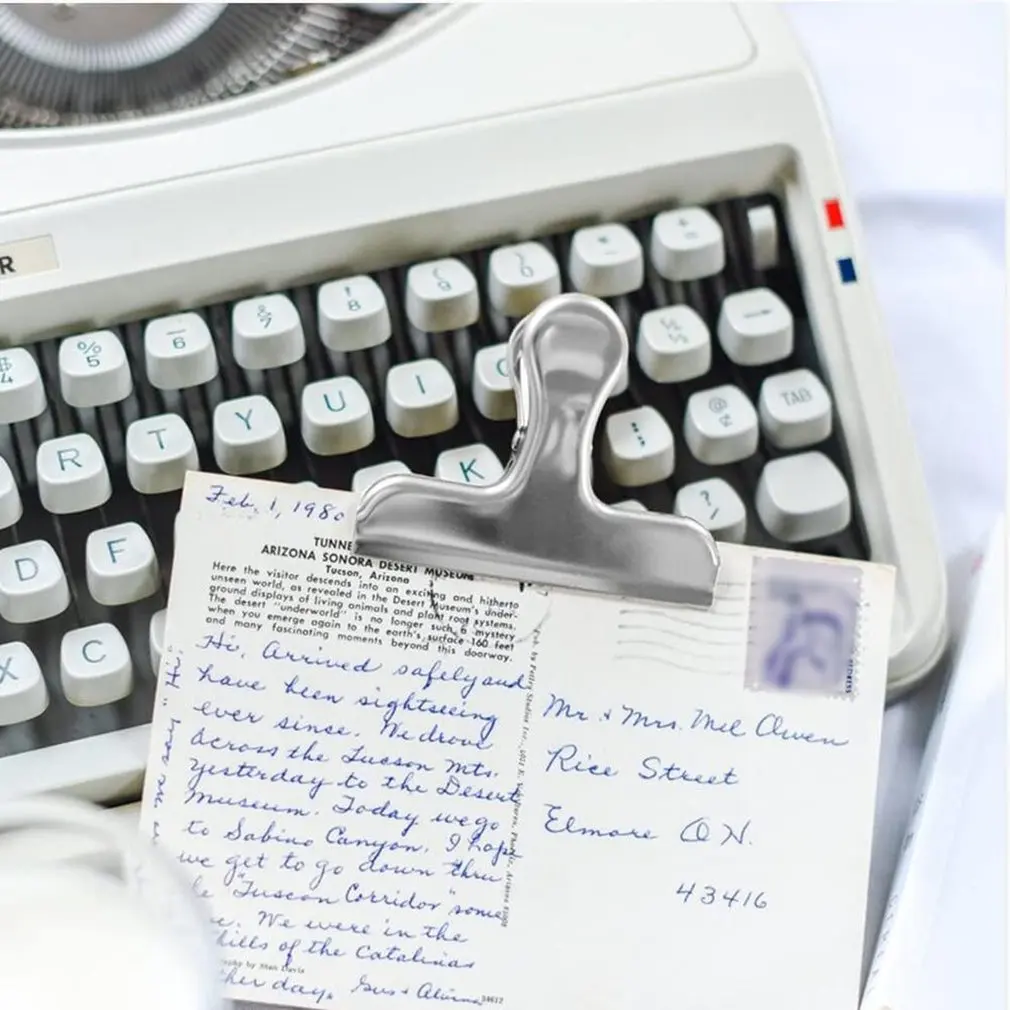 R
$ 4
% 5
6
& 7
! 8
( 9
) 0
* -
+ =
¼ ½
R T Y U I
@ ¢
TAB
D F K
? /
X C
Feb. 1, 198
TUNNE
ARIZONA SONORA DESERT MUSEUM
Tucson, Arizona
Here the visitor descends into an exciting and hitherto
unseen world, as revealed in the Desert Museum's under-
ground displays of living animals and plant root systems.
The desert "underworld" is no longer such a mystery
when you emerge again to the earth's surface 160 feet
and many fascinating moments beyond this doorway.
Hi, Arrived safely and
have been sightseeing
ever since. We drove
across the Tucson Mts.
yesterday to the Desert
Museum. Today we go
to Sabino Canyon. I hope
we get to go down thru
"Tuscon Corridor" some
We were in the
hills of the Catalinas
her day. Gus +
by Stan Davis
34612
Pub. by Petley Studios Inc., Phoenix, Arizona
Mr. & Mrs. Mel Owen
Rice Street
Elmore OH.
43416